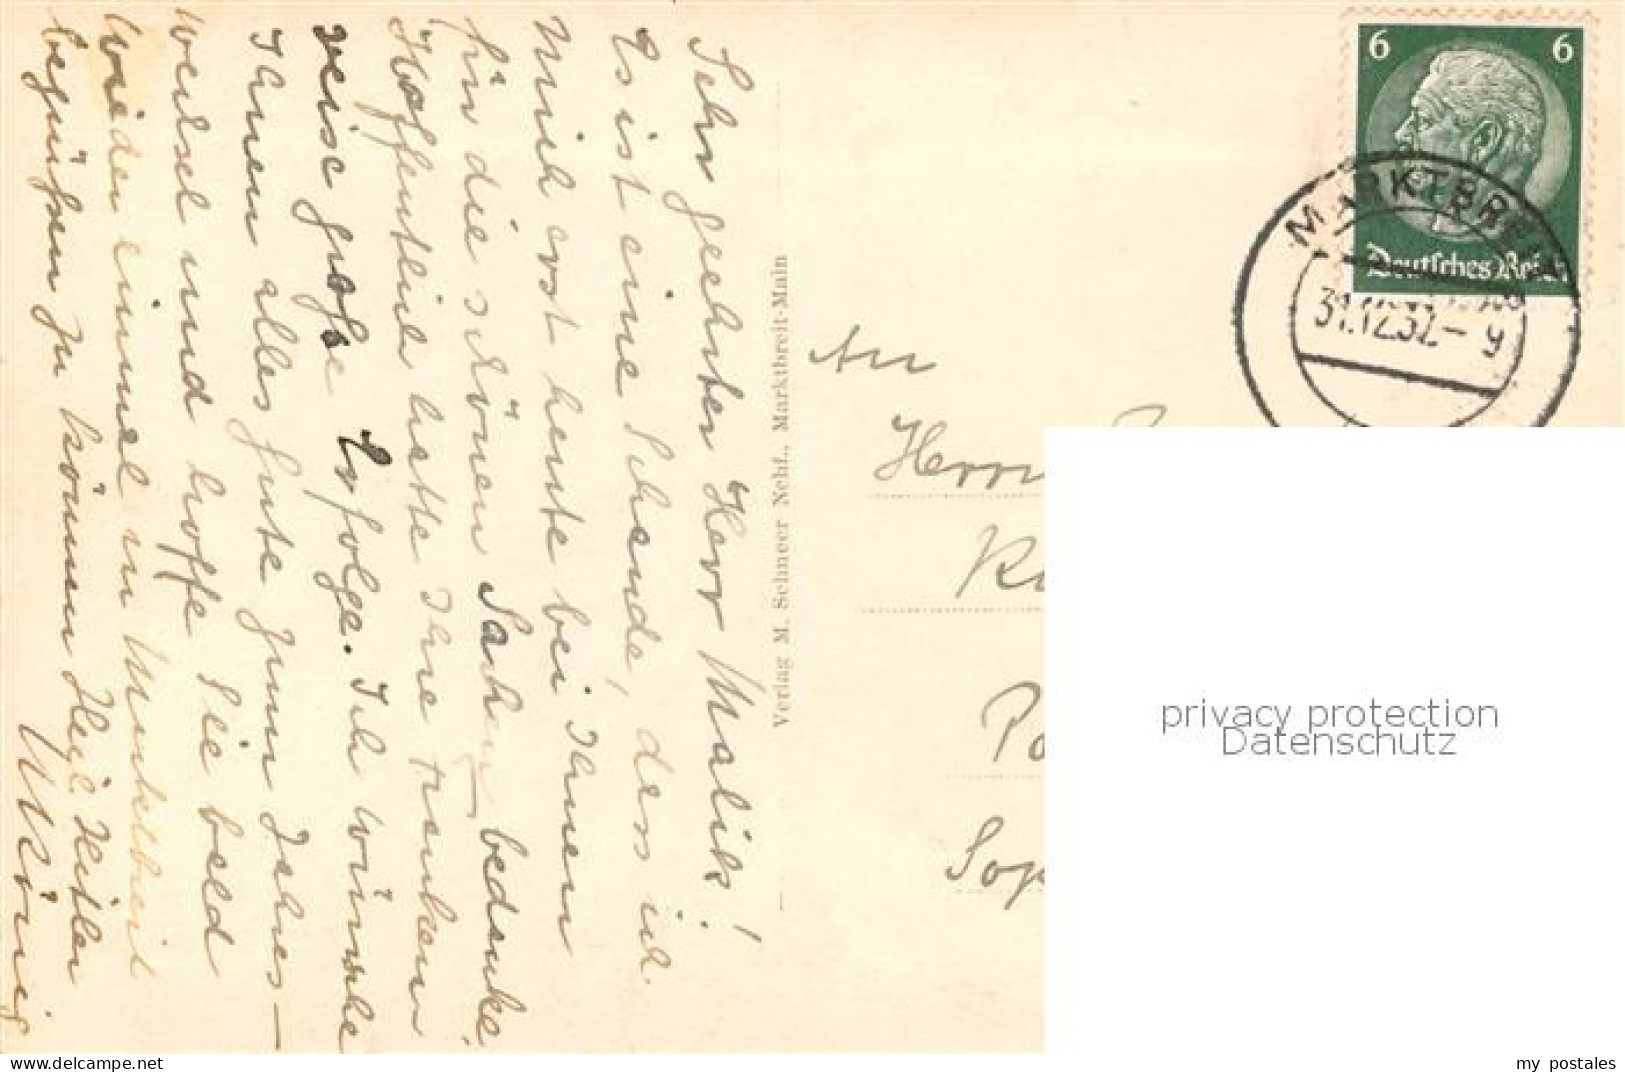 Sehr geehrter Herr Malik!
Es ist eine Schande, dass ich
mich erst heute bei Ihnen
für die schönen Sachen bedanke.
Hoffentlich hatte Ihre Franken
reise große Erfolge. Ich wünsche
Ihnen alles Gute zum Jahres-
wechsel und hoffe Sie bald
wieder einmal in Marktbreit
begrüßen zu können Heil Hitler
König
Verlag M. Schneer Nchf., Marktbreit-Main
6 6
Deutsches Reich
MARKTBREIT
31.12.37-9
An
Herrn
privacy protection
Datenschutz
delcampe.net
my_postales